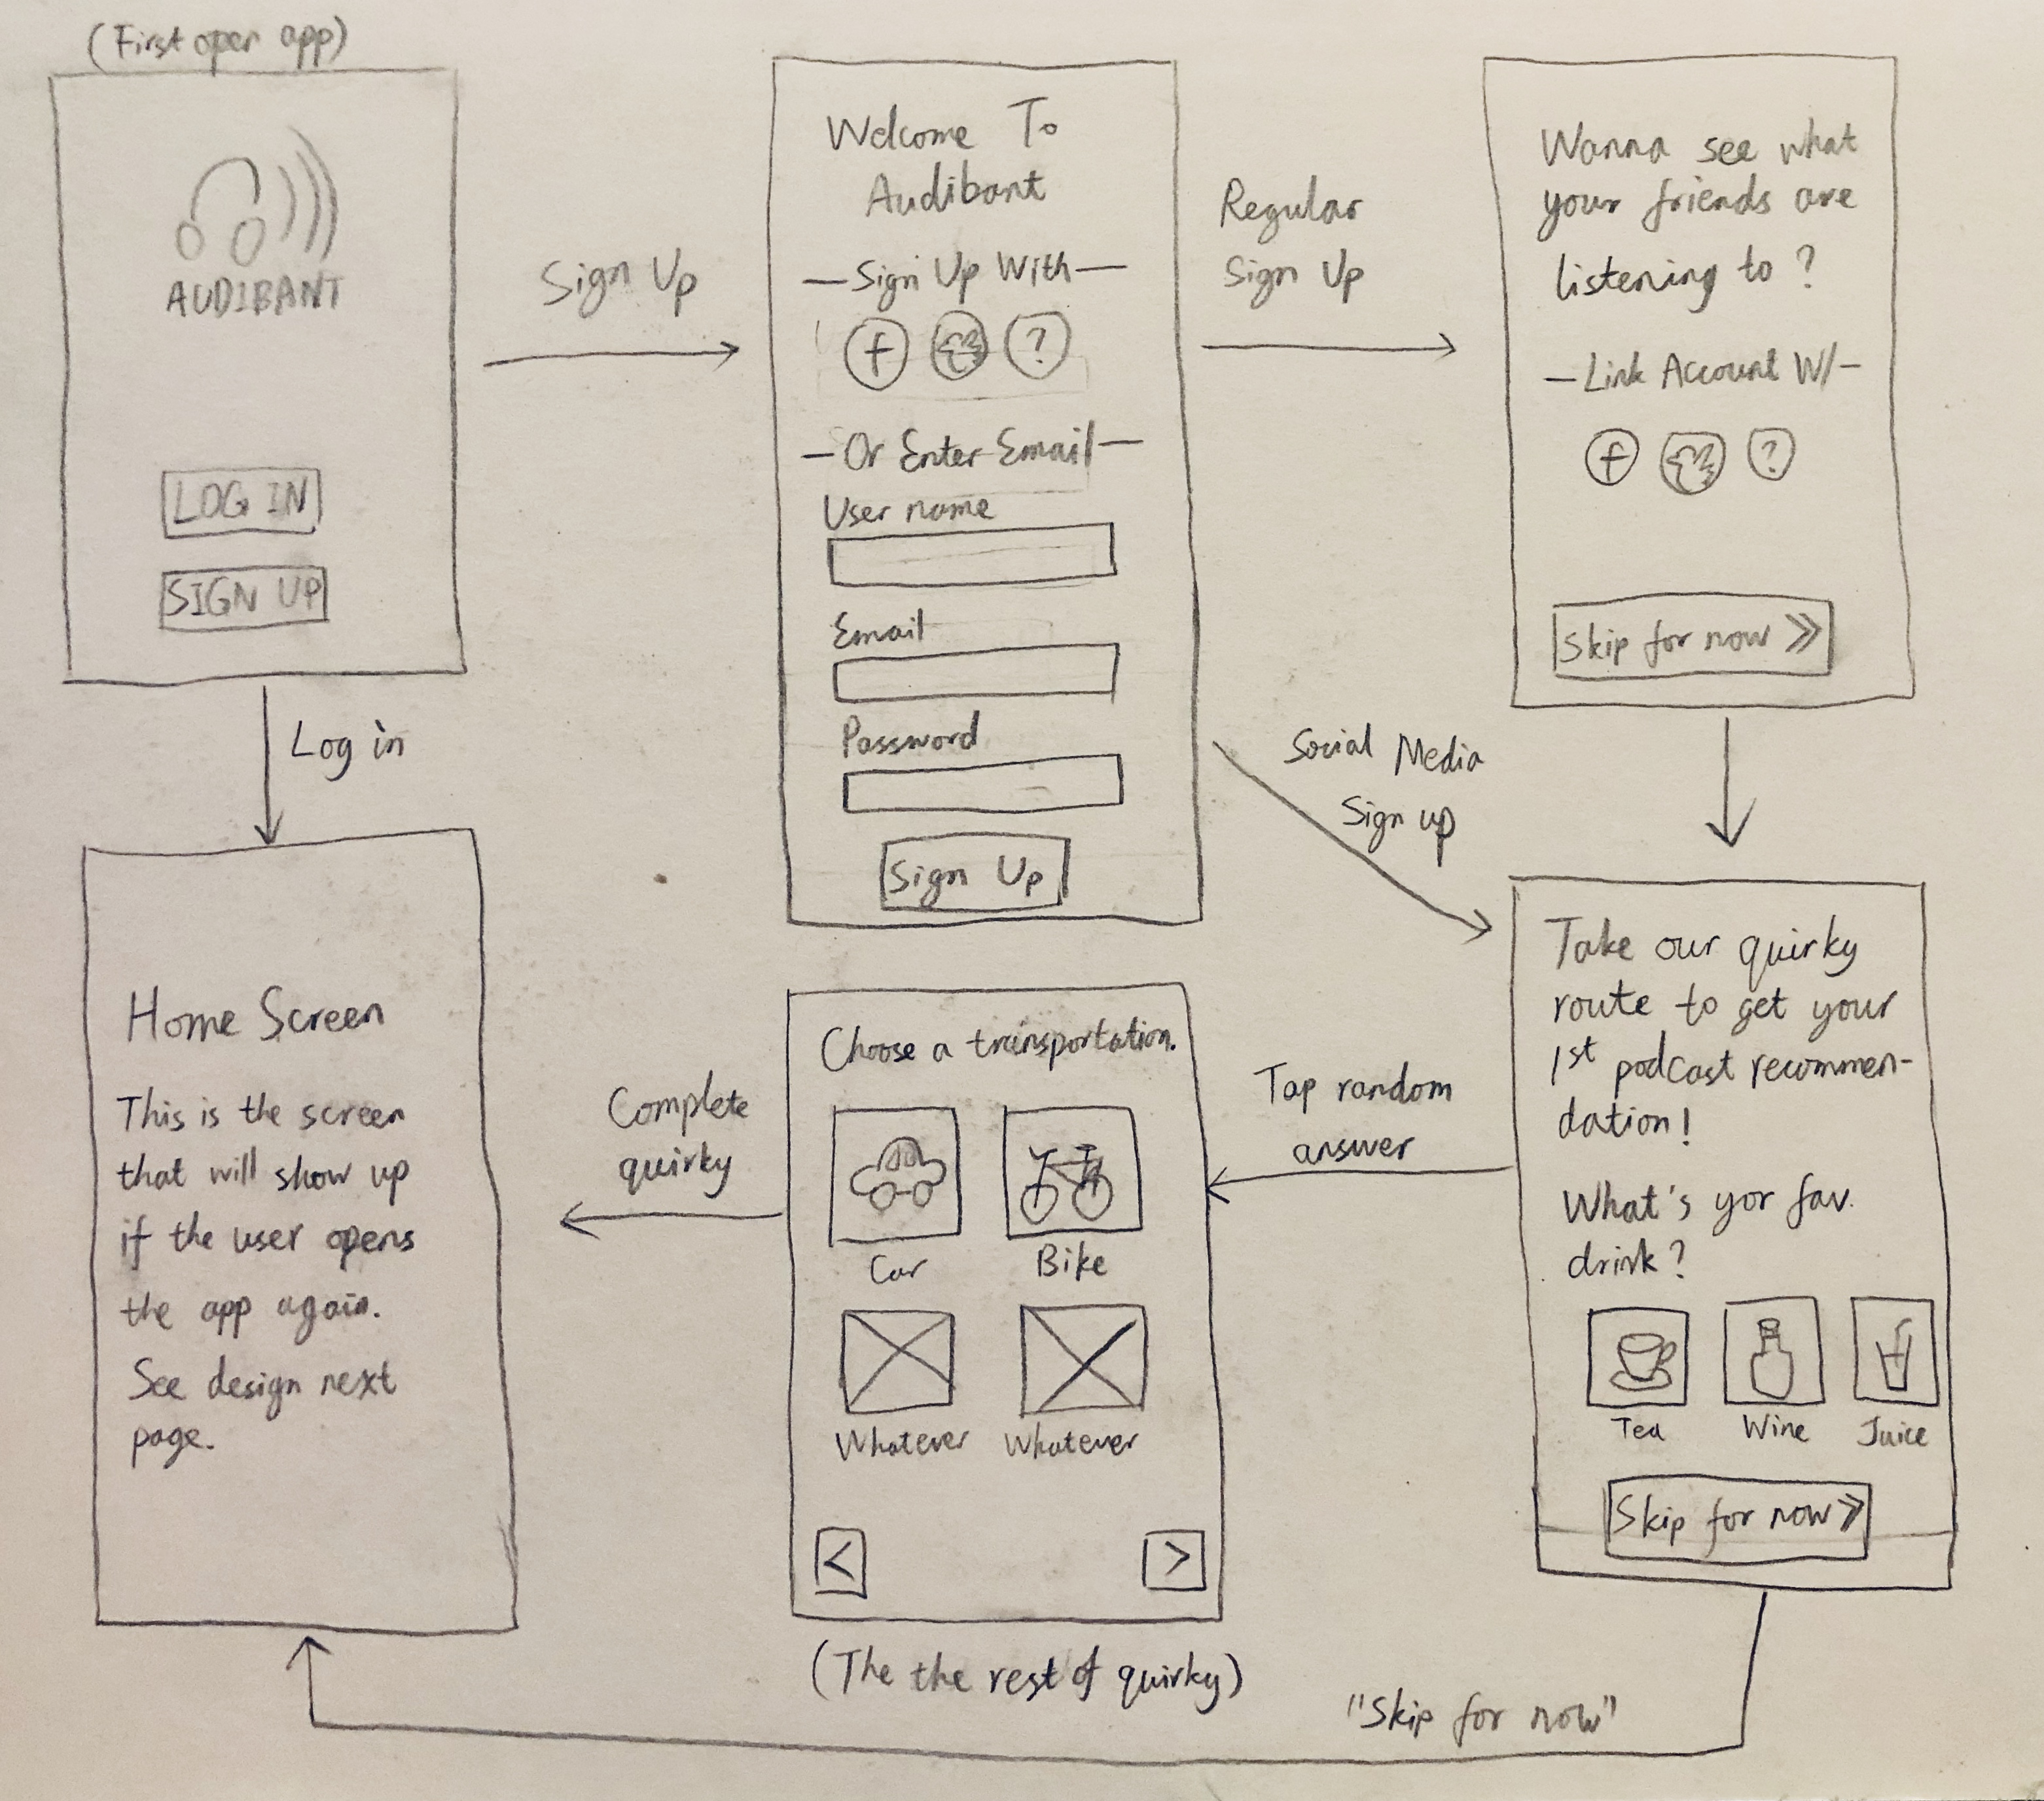 (First open app)
AUDIBANT
LOG IN
SIGN UP
Sign Up
Log in
Welcome To
Audibant
—Sign Up With—
f ?
—Or Enter Email—
User name
Email
Password
Sign Up
Regular
Sign Up
Wanna see what
your friends are
listening to?
—Link Account W/—
f ?
Skip for now >>
Social Media
Sign up
Take our quirky
route to get your
1st podcast recommen-
dation!
What's yor fav.
drink?
Tea Wine Juice
Skip for now >>
Tap random
answer
Choose a transportation.
Car Bike
Whatever Whatever
< >
(The the rest of quirky)
Complete
quirky
Home Screen
This is the screen
that will show up
if the user opens
the app again.
See design next
page.
"Skip for now"